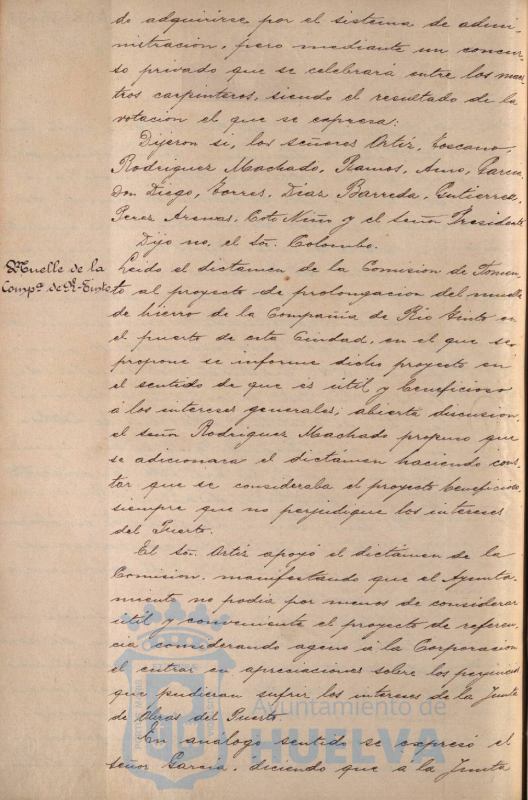 de adquirirse por el sistema de admi-
nistracion, pero mediante un concur-
so privado que se celebrará entre los maes-
tros carpinteros, siendo el resultado de la
votacion el que se expresa:
Dijeron si, los señores Ortiz, Toscano,
Rodriguez Machado, Ramos, Garcia,
Don Diego, Torres, Diaz Barreda, Gutierrez,
Perez Arenas, Coto Niño y el señor Presidente
Dijo no, el Sor. Colombo.
Muelle de la
Compª. de R-Tinto
Leido el dictamen de la Comision de Fomen-
to al proyecto de prolongacion del muelle
de hierro de la Compañia de Rio Tinto en
el puerto de esta Ciudad, en el que se
propone se informe dicho proyecto en
el sentido de que es útil y beneficioso
á los intereses generales; abierta discusion,
el señor Rodriguez Machado propuso que
se adicionara el dictámen haciendo cons-
tar que se consideraba el proyecto beneficioso
siempre que no perjudique los intereses
del Puerto.
El Sor. Ortiz apoyó el dictámen de la
Comision, manifestando que el Ayunta-
miento no podia por menos de considerar
útil y conveniente el proyecto de referen-
cia considerando ageno á la Corporacion
el entrar en apreciaciones sobre los perjuicios
que pudieran sufrir los intereses de la Junta
de Obras del Puerto.
En análogo sentido se expresó el
señor Garcia, diciendo que á la Junta
Ayuntamiento de
HUELVA